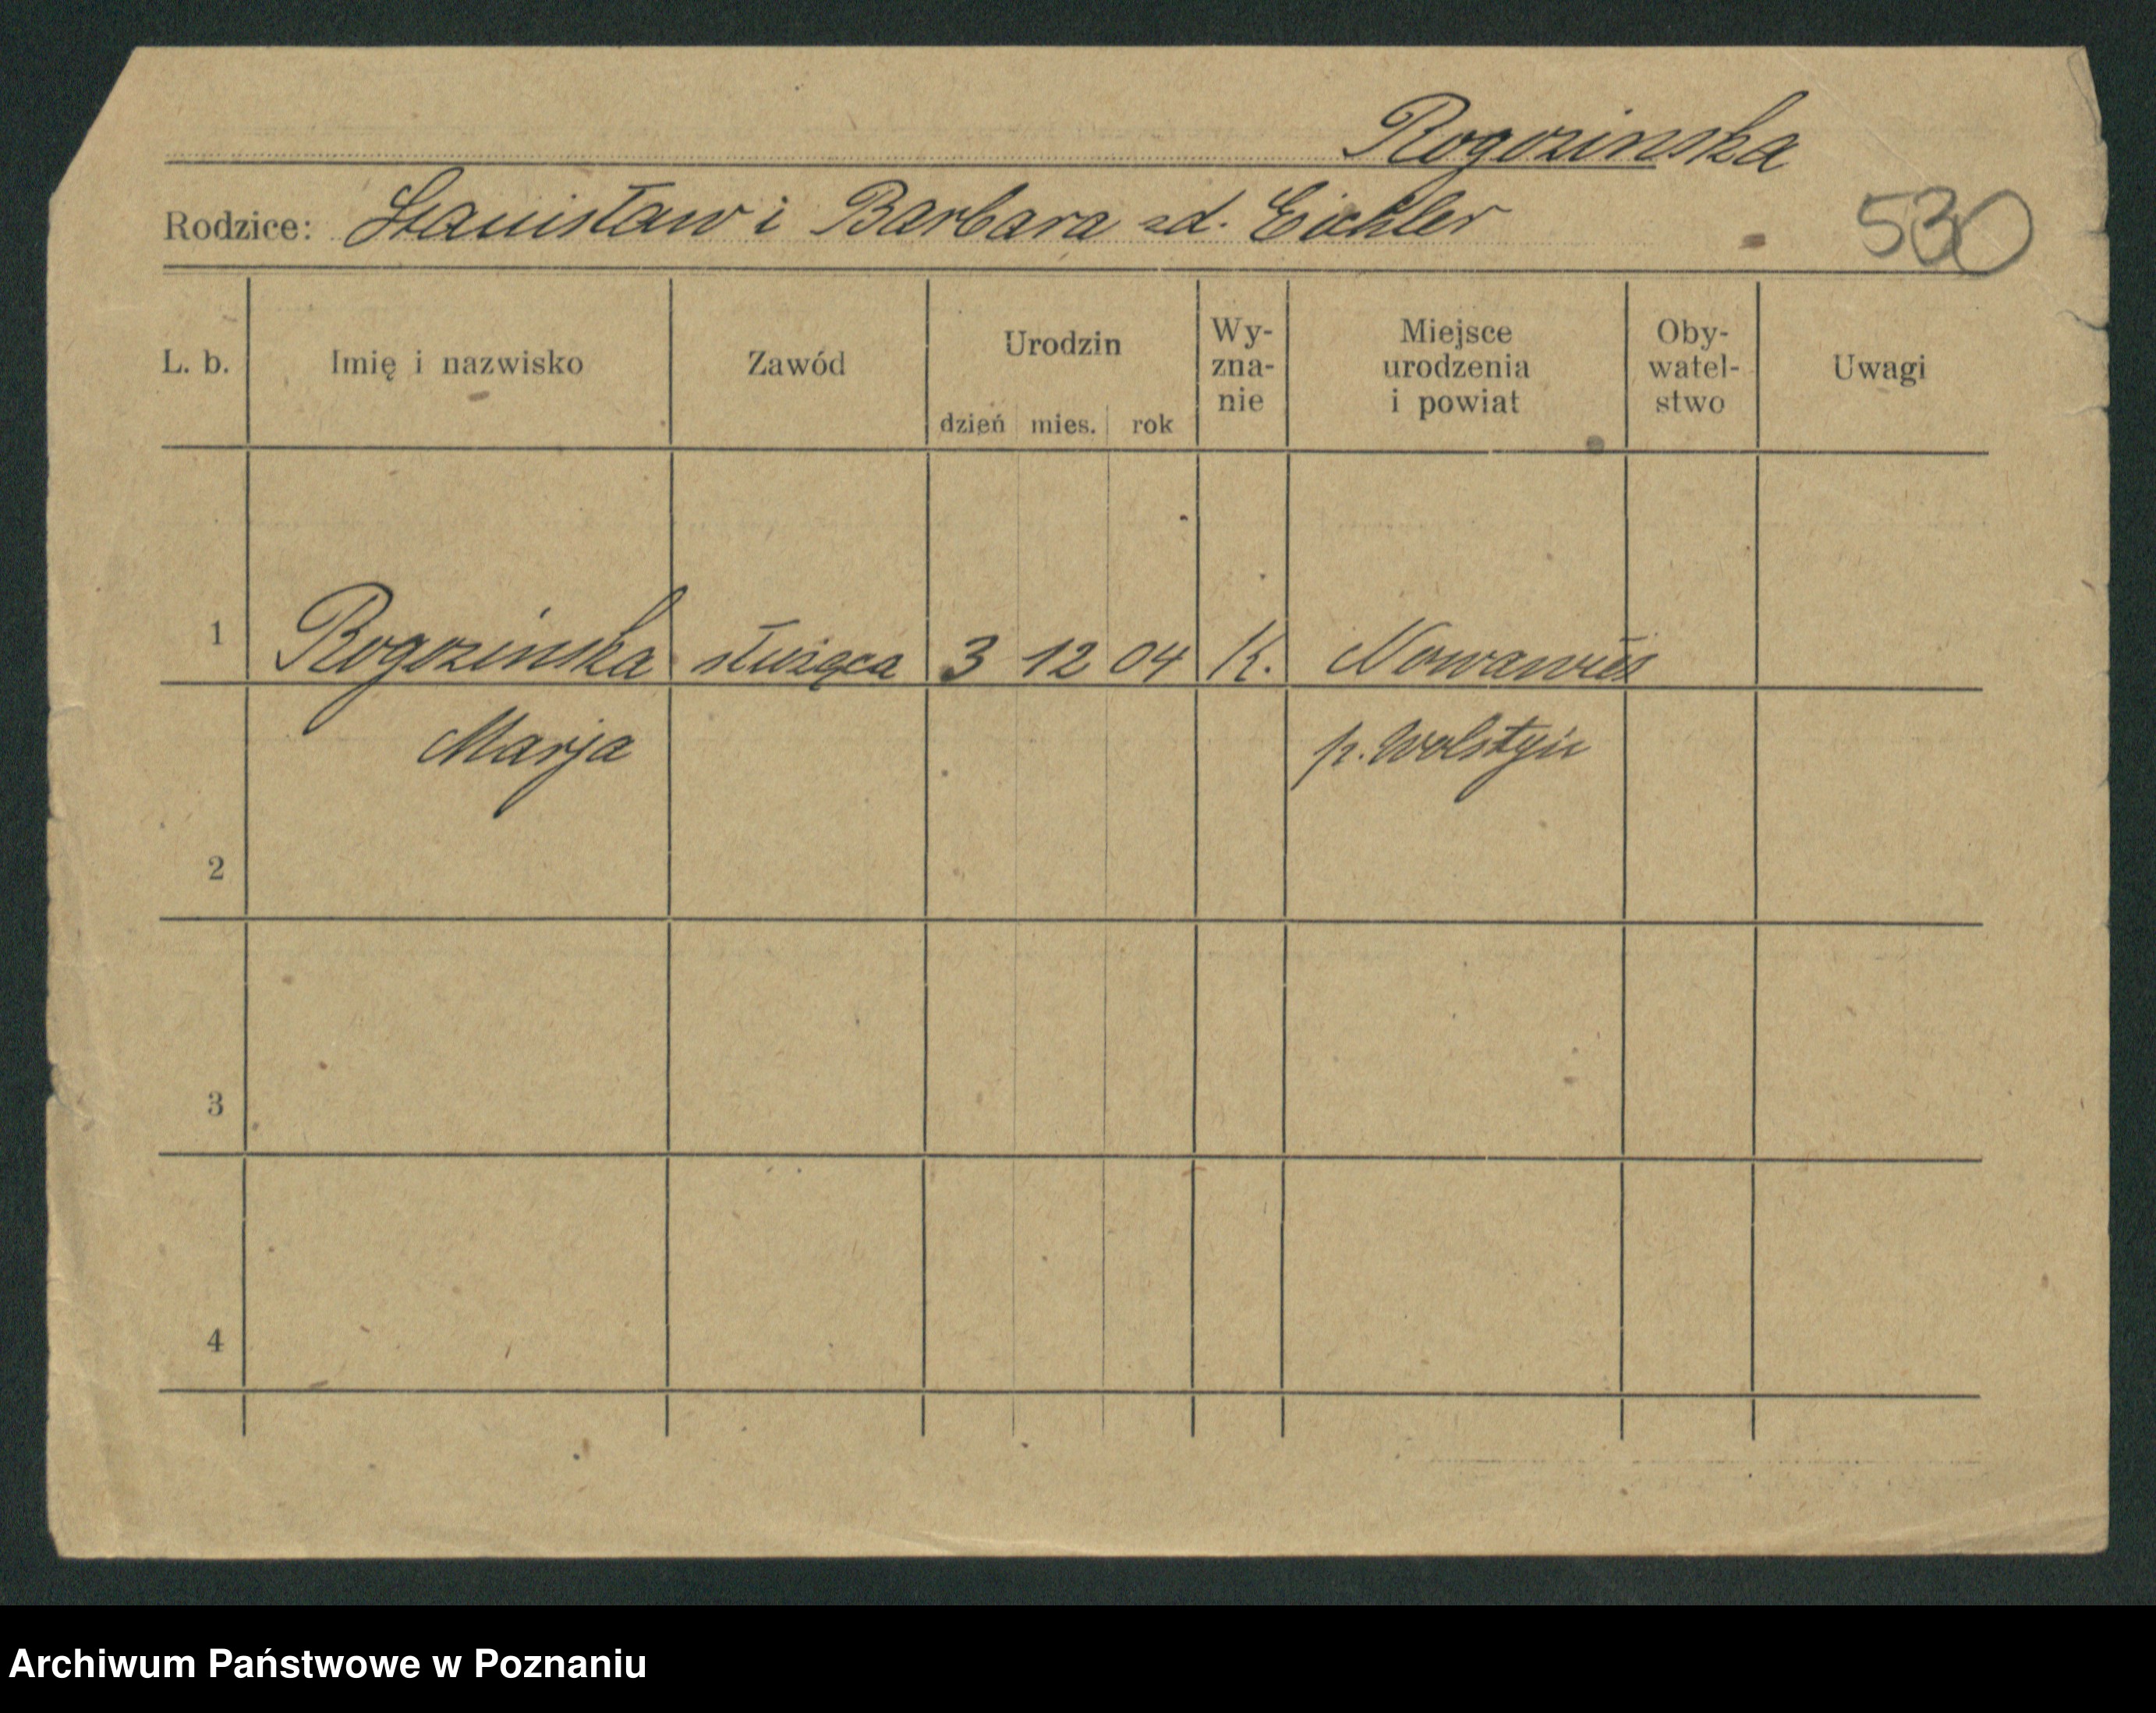 Rogozinska
Rodzice: Stanisław i Barbara zd. Eichler
530
L. b.
Imię i nazwisko
Zawód
Urodzin
dzień mies. rok
Wy-
zna-
nie
Miejsce
urodzenia
i powiat
Oby-
watel-
stwo
Uwagi
1 Rogozińska służąca 3 12 04 K. Nowawieś
Marja p. Wolsztyn
2
3
4
Archiwum Państwowe w Poznaniu